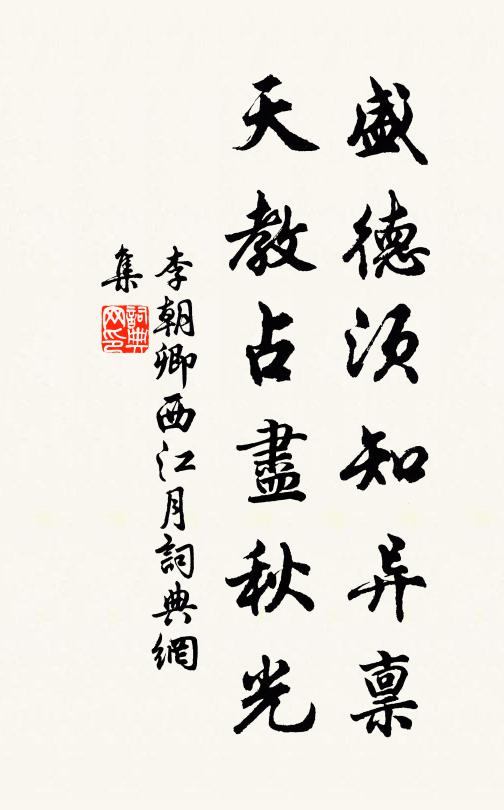 盛德須知异禀
天教占盡秋光
李朝卿西江月詞典網
集
詞典
网印